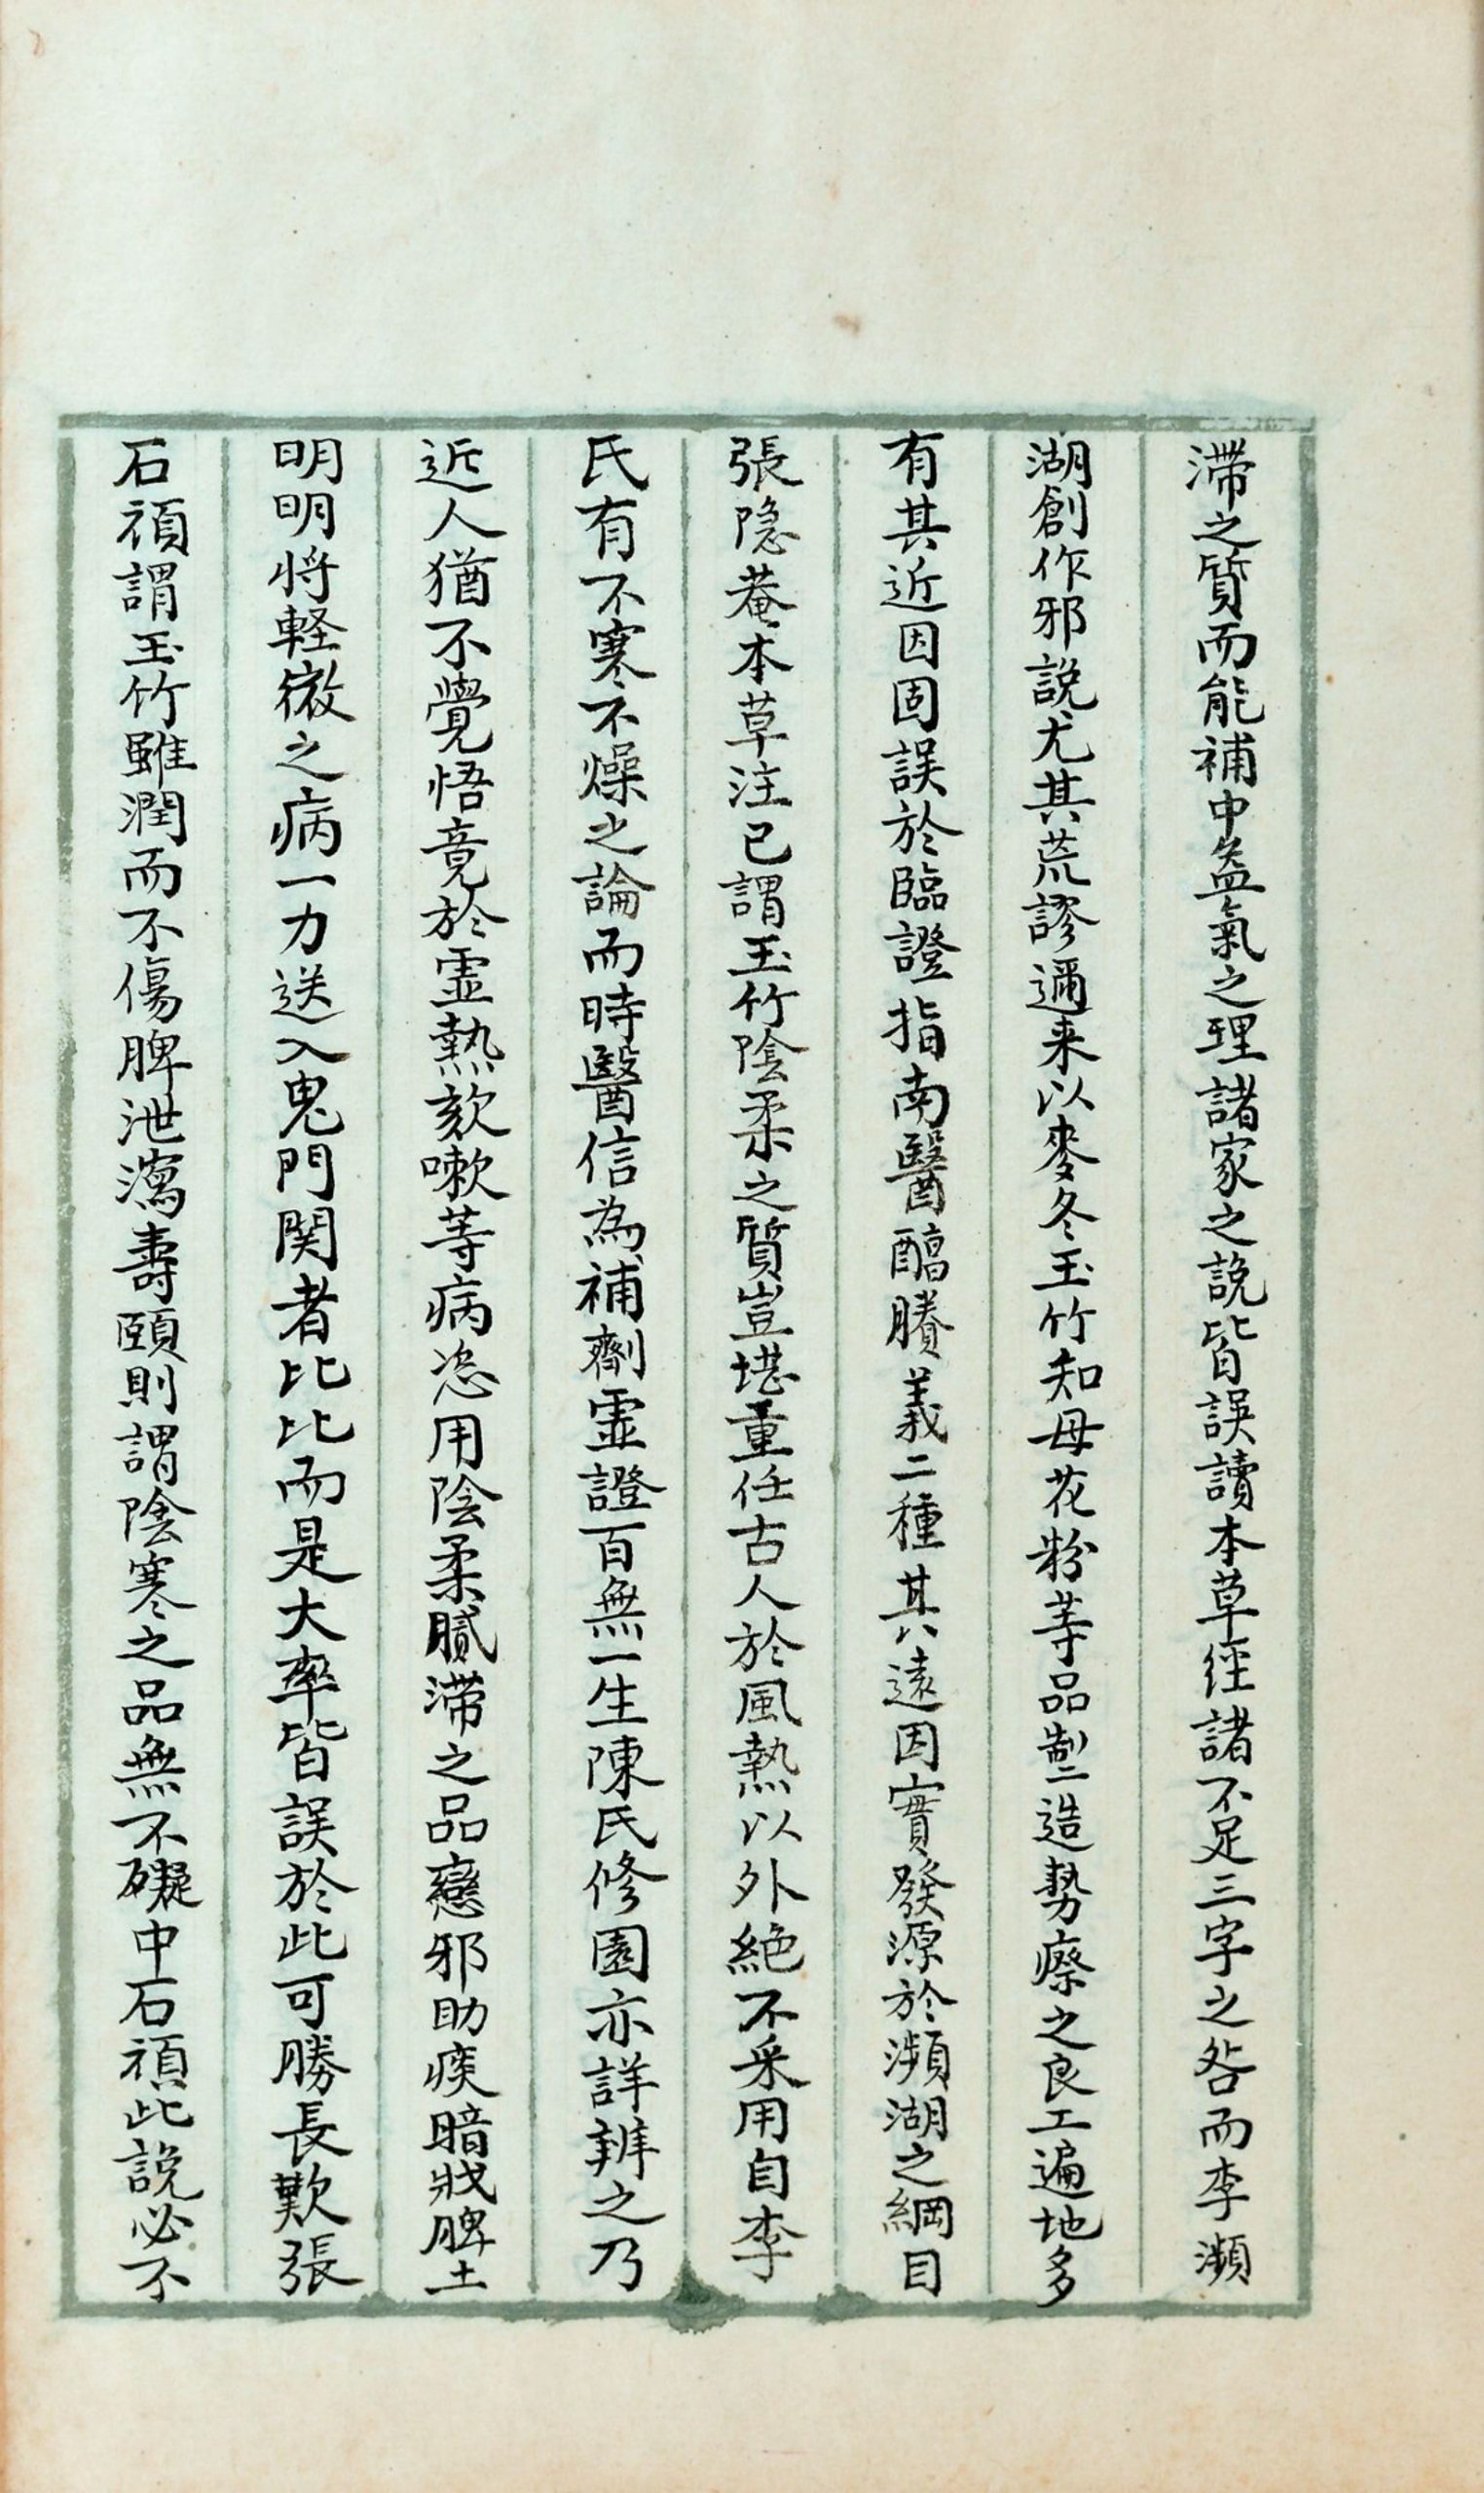 滯之質而能補中益氣之理諸家之說皆誤讀本草經諸不足三字之咎而李瀕
湖創作邪說尤其荒謬邇来以麥冬玉竹知母花粉等品製造勢瘵之良工遍地多
有其近因固誤於臨證指南醫醇賸義二種其遠因實發源於瀕湖之綱目
張隐菴本草注已謂玉竹陰柔之質豈堪重任古人於風熱以外絕不采用自李
氏有不寒不燥之論而時醫信為補劑虛證百無一生陳氏修園亦詳辨之乃
近人猶不覺悟竟於虛熱欬嗽等病恣用陰柔膩滯之品戀邪助痰暗戕脾土
明明將軽微之病一力送入鬼門関者比比而是大率皆誤於此可勝長歎張
石頑謂玉竹雖潤而不傷脾泄瀉壽頤則謂陰寒之品無不礙中石頑此說必不